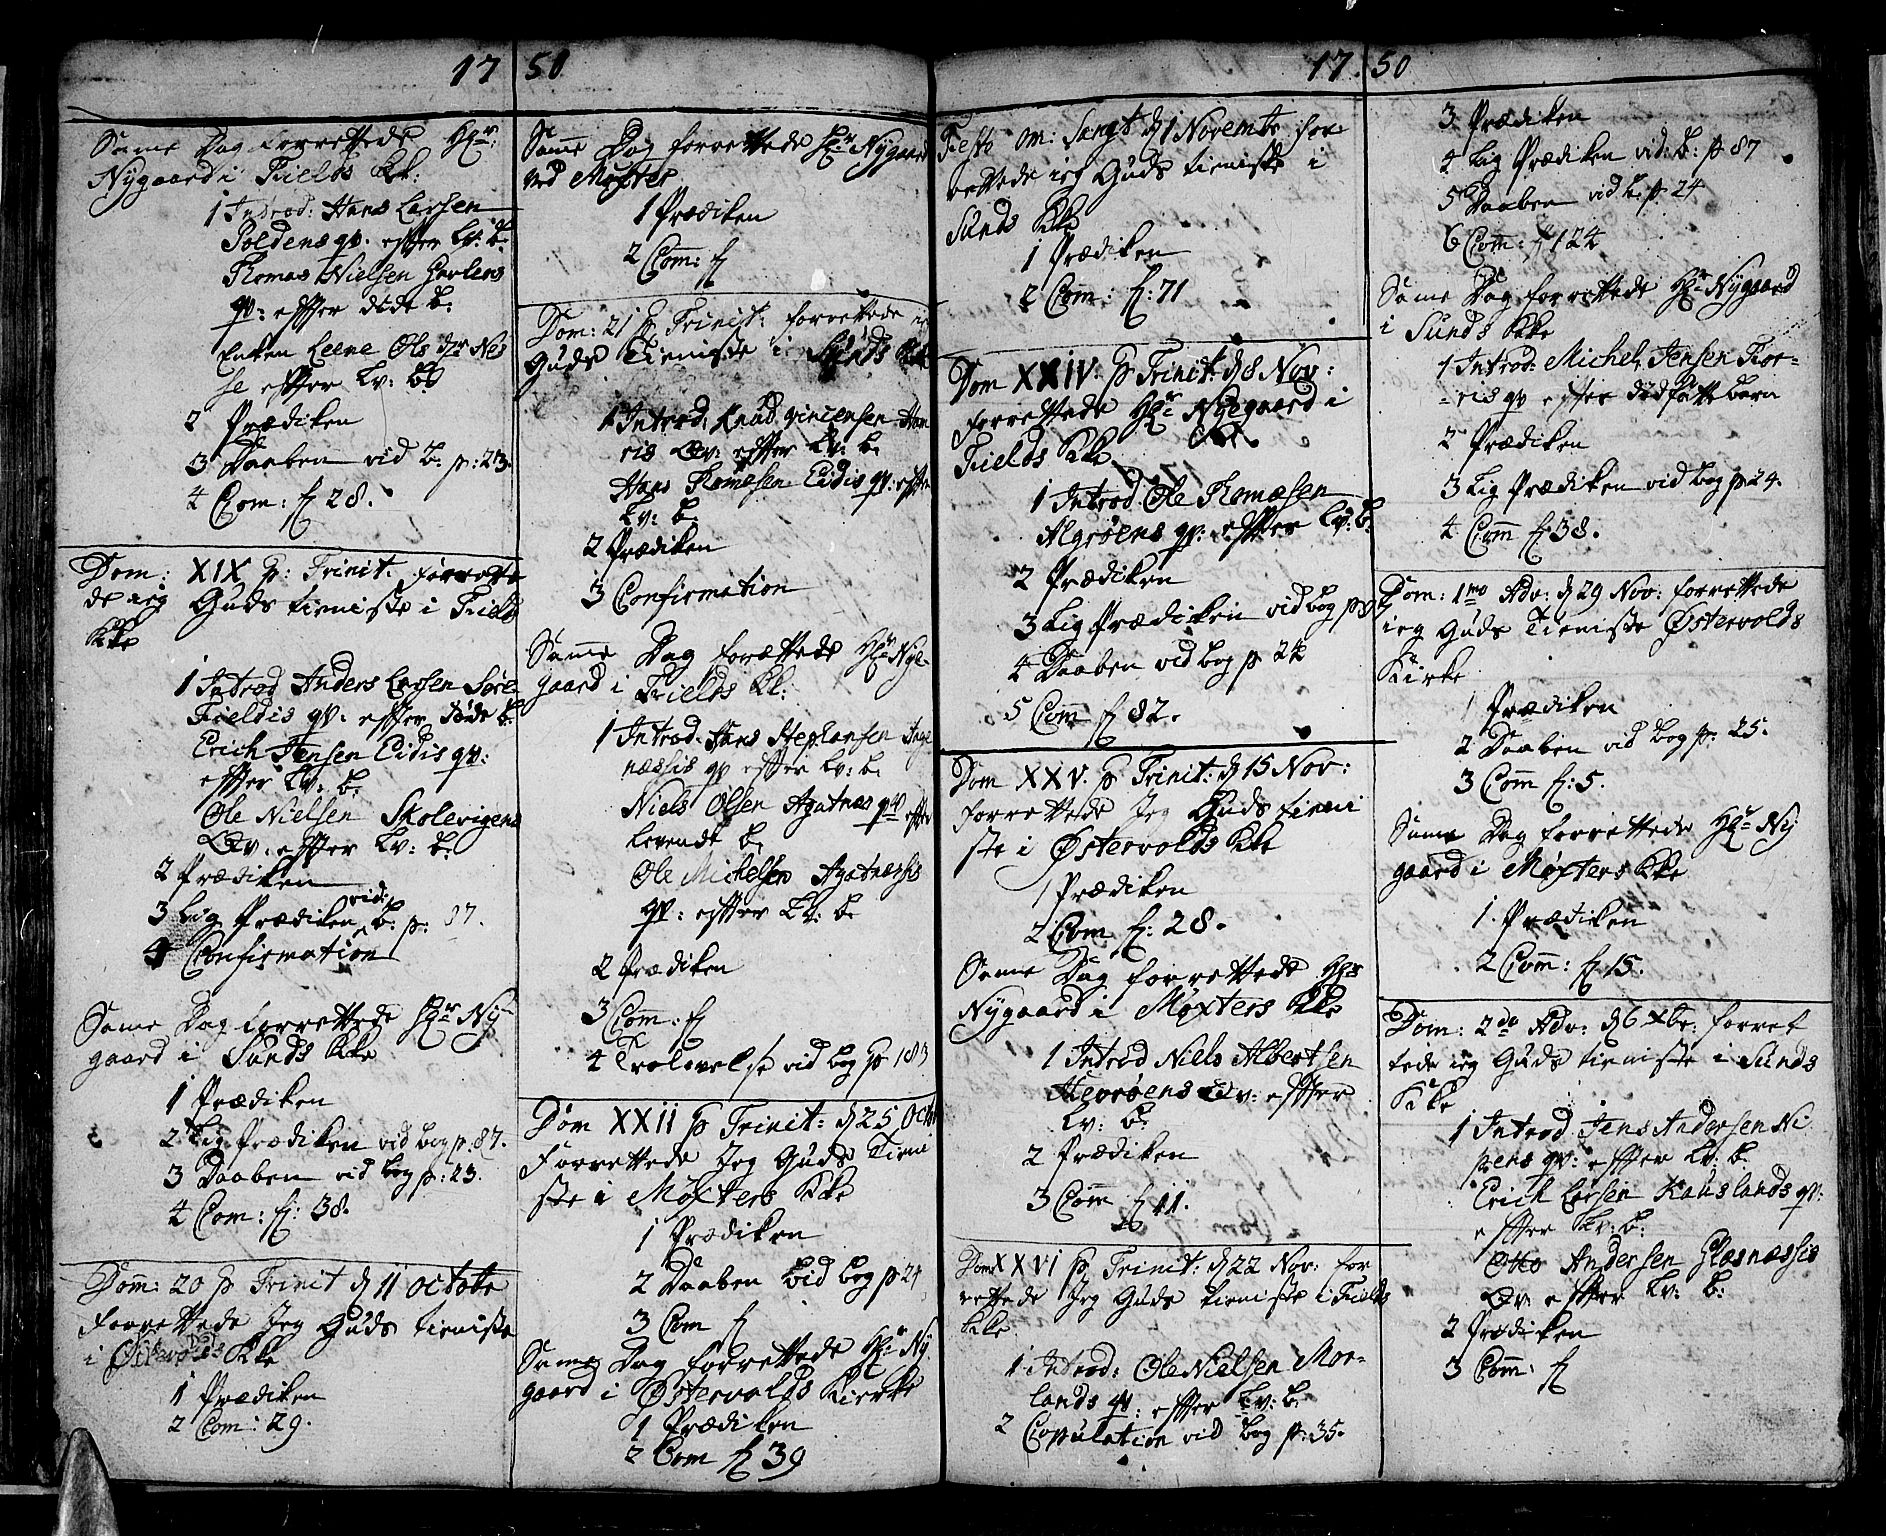 17 50
Same Dag forrettede Hr:
Nygaard i Fields Kk:
1 Introd: Hans Larsen
Poldens qv. effter Lv: B.
Thomas Nielsen Gavlens
qv: effter døde B.
Enken Leene Ols dr Nes
se effter Lv: B
2 Prædiken
3 Daaben vid B. p: 23.
4 Com: f 28.
Dom: XIX p: Trinit. forrette
de ieg Guds tieniste i Field
Kke
1 Introd Anders Larsen Søre
Fieldis qv: effter døde B.
Erich Jensen Eidis qv:
effter Lv: B.
Ole Nielsen Skolevigens
Qv. effter Lv: B.
2 Prædiken
3 Lig Prædiken vid: B: p: 87.
4 Confirmation
Same Dag forrettede Hr Ny
gaard i Sunds Kke
1 Prædiken
2 Lig Prædiken vid bog p. 87.
3 Daaben vid bog p: 23.
4 Com: f: 38.
Dom: 20 p Trinit d 11 Octobr
forrettede Jeg Guds tieniste
i Østervolds Kke
1 Prædiken
2 Com: 29.
Same Dag forrettede Hr Nygaard
ved Møxter
1 Prædiken
2 Com: f
Dom: 21 p Trinit: forrettede
Guds Tieniste i Sunds Kke
1 Introd: Knud Vincensen
ris Qv: effter Lv: B.
Hans Thomesen Eidis qv: effter
Lv: B.
2 Prædiken
3 Confirmation
Same Dag forrettede Hr Nye-
gaard i Fields Kk:
1 Introd: Hans Stephansen
næssis qv effter Lv: B.
Niels Olsen Agatnæs qv effter
levende B.
Ole Michelsen Agatnæssis
qv: effter Lv: B.
2 Prædiken
3 Com: f
4 Trolovelse vid bog p 183
Dom XXII p Trinit: d 25 Octb
Forrettede Jeg Guds Tieni
ste i Møxters Kke
1 Prædiken
2 Daaben vid bog p 24
3 Com f
Same Dag forrettede Hr Ny
gaard i Østervolds Kierke
1 Prædiken
2 Com f 39
17.50
Festo om: Sangt d 1 Novembr for-
rettede ieg Guds tieniste i
Sunds Kke
1 Prædiken
2 Com: f: 71
Dom XXIV. p Trinit: d 8 Nov:
forrettede Hr Nyegaard i
Fields Kke
1 Introd Ole Thomæsen
Algrøens qv: effter Lv: B.
2 Prædiken
3 Lig Prædiken vid bog p
4 Daaben vid bog p 24
5 Com f 82.
Dom XXV. p Trinit: d 15 Nov:
forrettede Jeg Guds tieni
ste i Østervolds Kke
1 Prædiken
2 Com f: 28.
Same Dag forrettede Hr
Nygaard i Møxters Kke
1 Introd Niels Albertsen
Hevrøens Qv: effter
Lv: B.
2 Prædiken
3 Com f 11.
Dom XXVI p Trinit: d 22 Nov: for
rettede Jeg Guds tieniste i Fields
Kke
1 Introd: Ole Nielsen Mor-
lands qv: effter Lv: B.
2 Copulation vid bog p: 35.
3 Prædiken
4 Lig Prædiken vid: B: p 87
5 Daaben vid B. p 24
6 Com: f 124
Same Dag forrettede Hr Nygaard
i Sunds Kke
1 Introd: Michel Jensen Tor-
-ris qv effter dødfødte barn
2 Prædiken
3 Lig Prædiken vid bog p 24.
4 Com f 38.
Dom: 1mo Adv: d 29 Nov: forrettede
ieg Guds Tieniste Østervolds
Kirke
1 Prædiken
2 Daaben vid bog p: 25.
3 Com f: 5.
Same Dag forrettede Hr Ny
gaard i Møxters Kke
1. Prædiken
2 Com: f 15.
Dom: 2de Adv: d 6 Xbr: forret
tede ieg Guds tieniste i Sunds
Kke
1 Introd Jens Andersen Ni
pens qv: effter Lv: B.
Erich Larsen Kauslands qv:
effter Lv: B:
Otto Andersen Glesnæssis
Qv: effter Lv: B:
2 Prædiken
3 Com: f